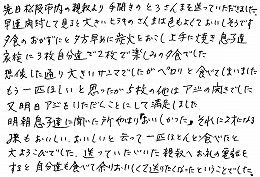 先日松阪市内の親族より手開きのとうさんまを送っていただきました。
早速開封して見ると大きいとうさのさんまは色もよくておいしそうです
夕食のおかずにと夕方早めに炭火をおこし上手に焼き息子達
家族に3枚自分達で2枚で楽しみの夕食でした。
想像した通り大きいサンマでしたがペロリと食べてしまいました
もう一匹ほしいと思ったが5枚の他はアジの開きでした
又明日アジをいただくことにして満足しました
明朝息子達に聞いた所やはりおいしかった。それに2才になる
孫もおいしい、おいしいと云って一匹ほとんど食べたと
大よろこびでした。送っていただいた親族へお礼の電話を
すると自分達も食べて余りおいしくて送りたくなったということでした。